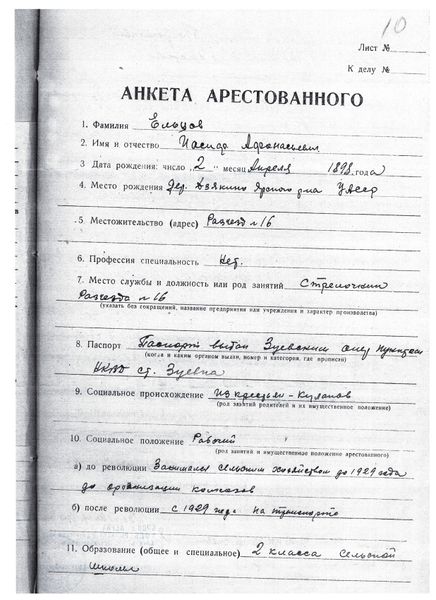 10
Лист №
К делу №
АНКЕТА АРЕСТОВАННОГО
1. Фамилия Ельцов
2. Имя и отчество Иосиф Афанасьевич
3 Дата рождения: число „2" месяц Апреля 1898 года
4. Место рождения дер. Дзякино УАССР
5. Местожительство (адрес) Разъезд № 16
6. Профессия специальность Нет.
7. Место службы и должность или род занятий Стрелочник
Разъезда № 16
(указать без сокращений, название предприятия или учреждения и характер производства)
8. Паспорт Паспорт выдан Зуевским опер пунктом
(когда и каким органом выдан, номер и категория, где прописан)
НКВД ст. Зуевка
9. Социальное происхождение из крестьян-кулаков
(род занятий родителей и их имущественное положение)
10. Социальное положение Рабочий
(род занятий и имущественное положение арестованного)
а) до революции Занимался сельским хозяйством до 1929 года
до организации колхозов
б) после революции с 1929 года на транспорте
11. Образование (общее и специальное) 2 класса сельской
школы